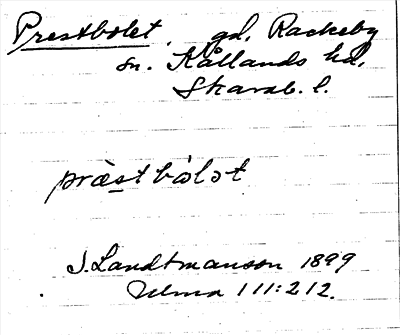 Prestbolet, gd, Rackeby
sn. Kållands hd,
Skarab. l.
præ̀stbòlət
J. Landtmanson 1899
Ulma 111:212.